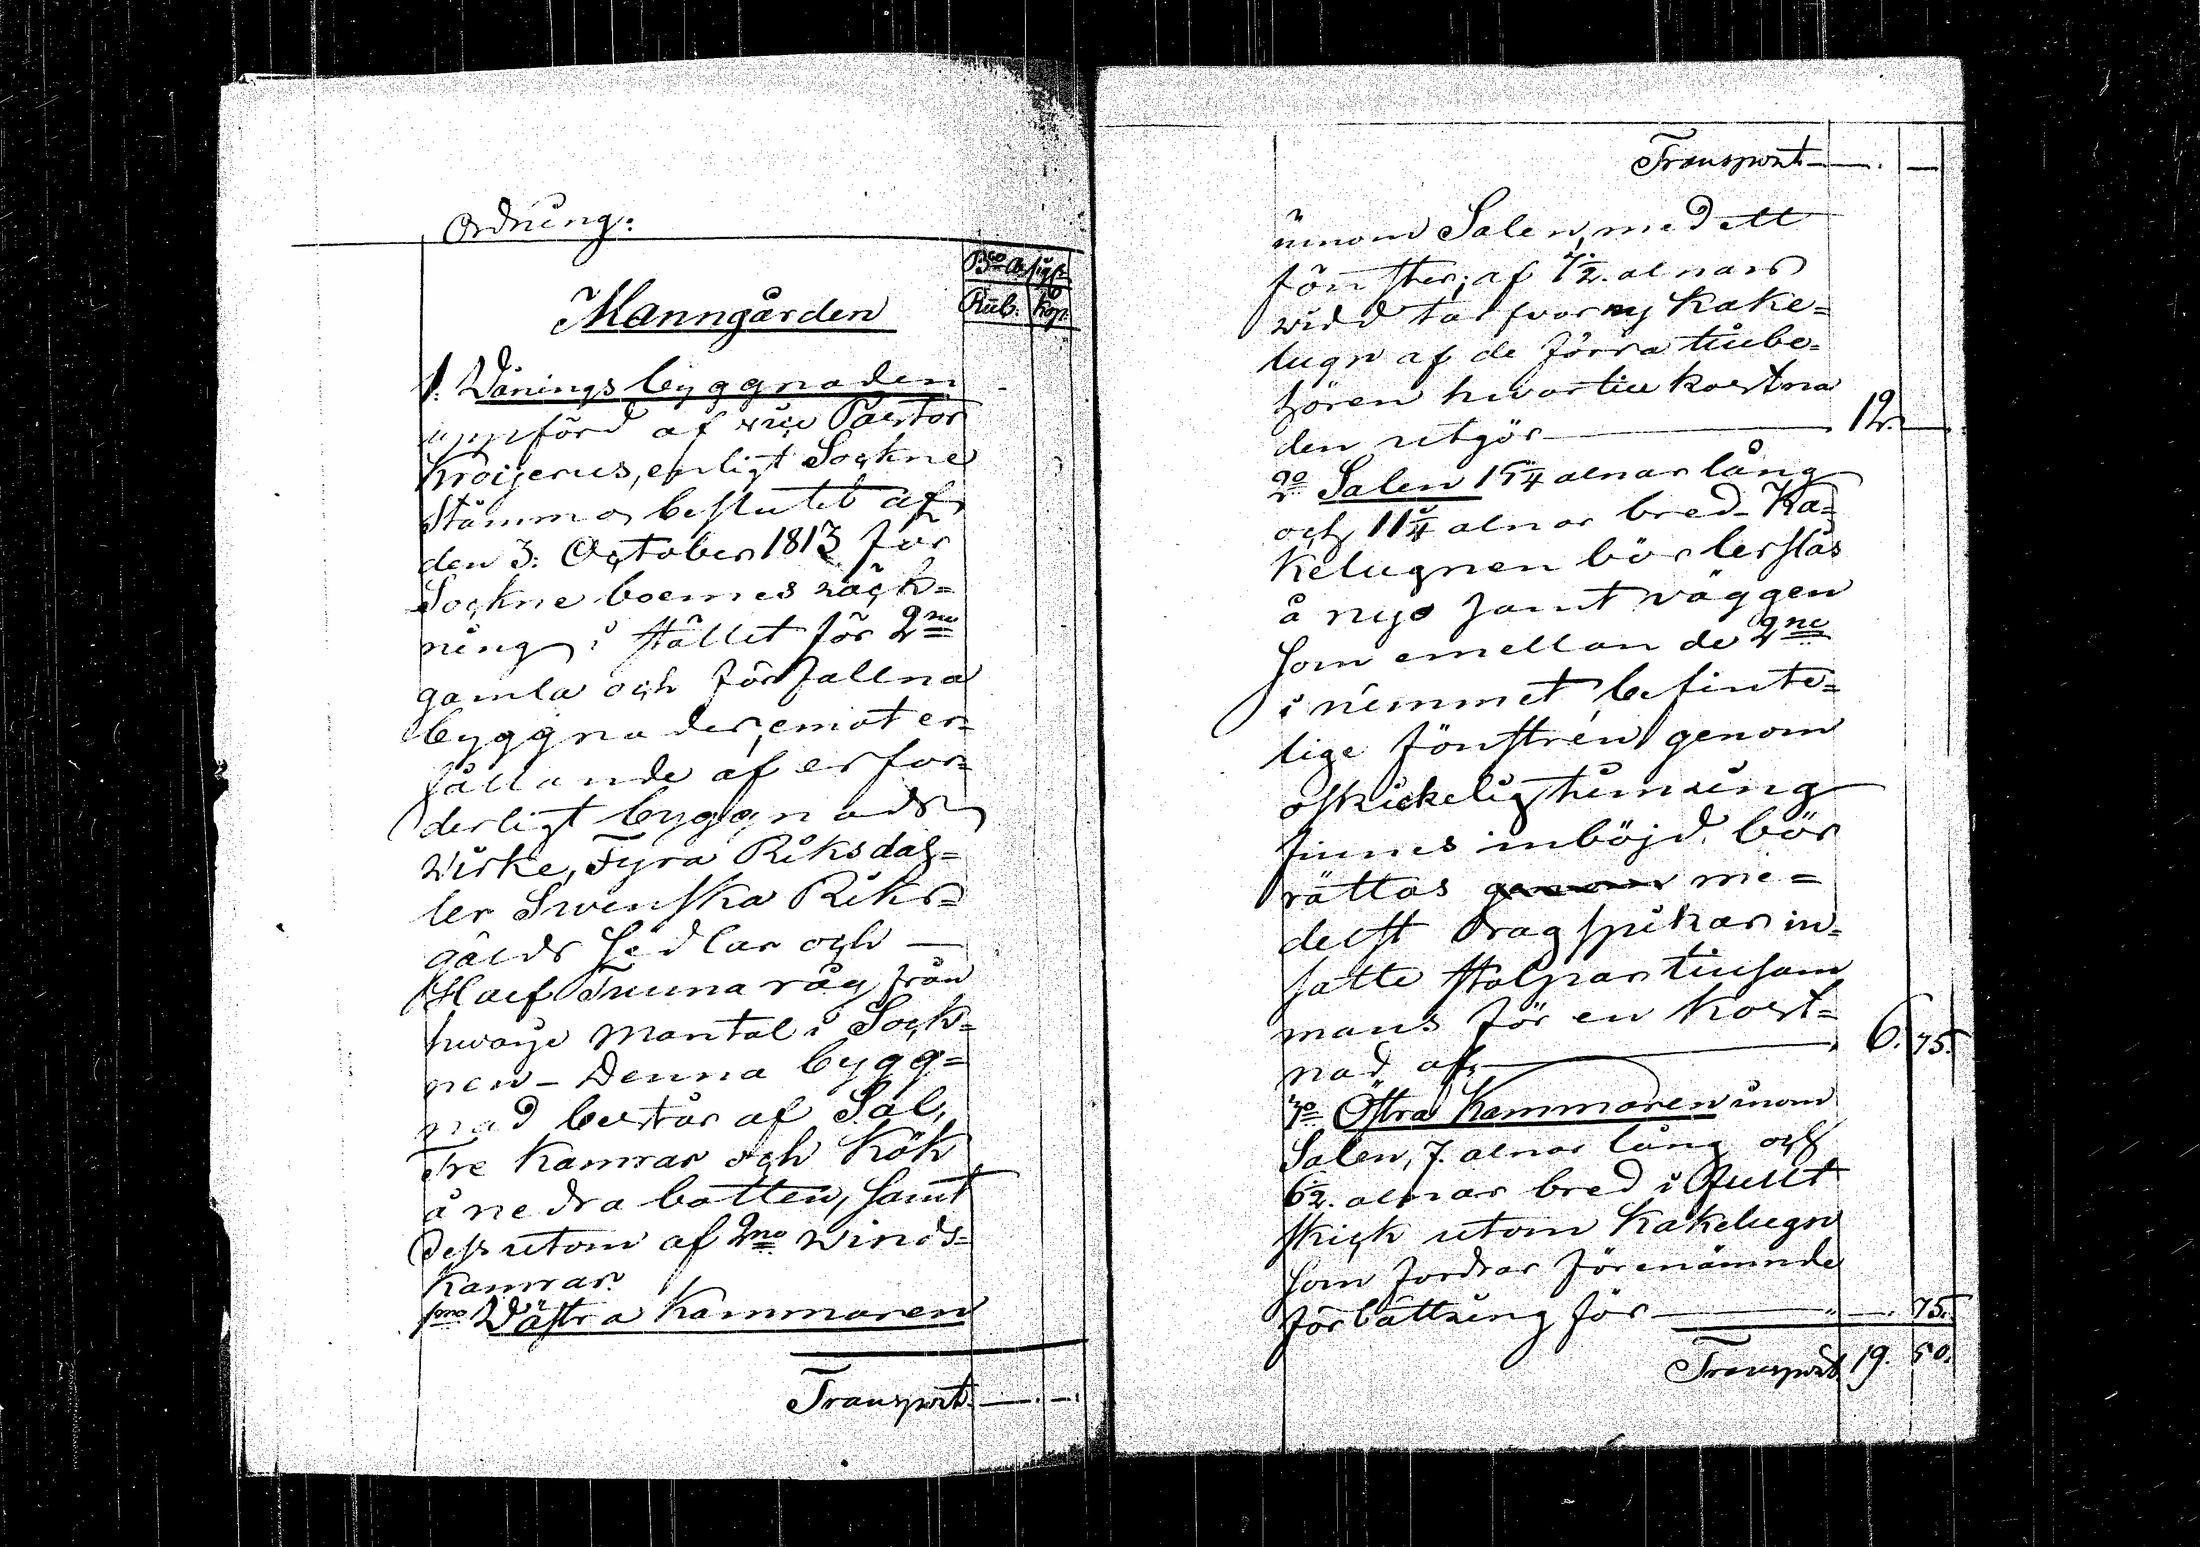 Ordning:
Bco Assign:
Rub. Kop:
Manngården
1. Wånings byggnaden
uppförd af nu Pastor
Kroijerus, enligt Sockne
Stämmo beslutet af
den 3: October 1813 för
Sockne boernes räck=
ning i stället för 2ne
gamla och förfallna
byggnader, emot er=
hållande af erfor=
derligt byggnads
Wirke, Fyra Riksdal=
ler Swenska Riks=
gälds Sedlar och —
Half Tunna råg från
hwarje Mantal i Sock=
nen – Denna bygg=
nad består af Sal,
Tre Kamrar och Kök
å nedra botten, samt
dessutom af 2ne Winds=
Kamrar.
1mo Wästra Kammaren
Transport — . — .
Transport — . —
innom Salen, med ett
fönster, af 7½ alnars
widd tarfvar ny Kake=
lugn af de förra tillbe=
hören hwartill kostna
den utgör — 12. —
2o Salen 15¼ alnar lång
och 11¾ alnar bred – Ka=
kelugnen bör lerslås
å nyo samt wäggen
som emellan de 2ne
i rummet befinte=
lige fönstren genom
oskickelig timring
finnes inböjd, bör
rättas genom me=
delst dragspikar in=
satte stolpar tillsam
mans för en kost=
nad af — 6. 75.
3o Östra Kammaren inom
Salen, 7. alnar lång och
6½. alnar bred i gullt
skick utom Kakelugn
som fordrar förenämnde
förbättring för — " — . 75.
Transport 19. 50.